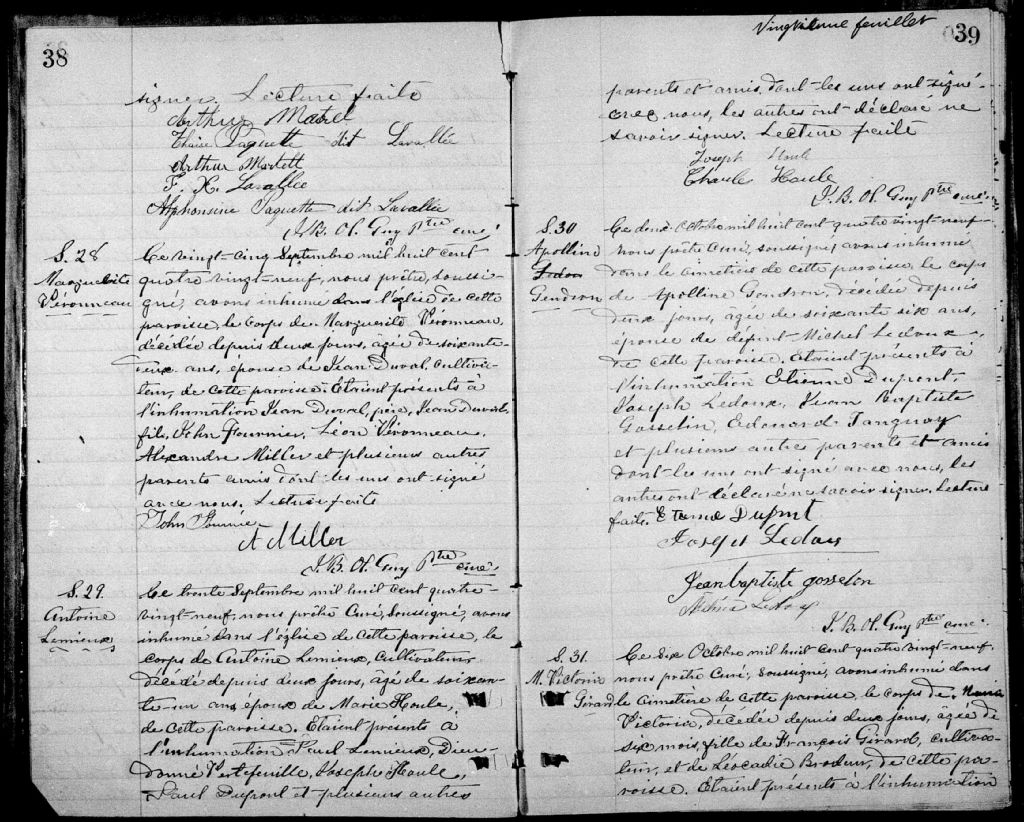 38
signer. Lecture faite
Arthur Matel
Thaïse Paquette dit Lavallée
Arthur Martell
F. X. Lavallée
Alphonsine Paquette dit Lavallée
J. B. H. Guy Ptre curé
S. 28
Marguerite
Véronneau
Ce vingt-cinq Septembre mil huit cent
quatre vingt-neuf, nous prêtre, soussi-
gné, avons inhumé dans l'église de cette
paroisse, le corps de Marguerite Véronneau,
décédée depuis deux jours, agée de soixante-
deux ans, épouse de Jean Duval, cultiva-
teur, de cette paroisse. Etaient présents à
l'inhumation Jean Duval, père, Jean Duval
fils, John Fournier, Léon Véronneau,
Alexandre Miller et plusieurs autres
parents amis dont les uns ont signé
avec nous. Lecture faite
John
A Miller
J. B. H. Guy Ptre curé
S. 29.
Antoine
Lemieux
Ce trente Septembre mil huit cent quatre-
vingt-neuf, nous prêtre Curé, soussigné, avons
inhumé dans l'église de cette paroisse, le
corps de Antoine Lemieux, cultivateur,
décédé depuis deux jours, agé de soixan-
te-un ans, époux de Marie Houle,
de cette paroisse. Etaient présents à
l'inhumation Paul Lemieux, Dieu-
donné Vertefeuille, Joseph Houle,
Paul Dupont et plusieurs autres
feuillet
39
parents et amis, dont les uns ont signé
avec nous, les autres ont déclaré ne
savoir signer. Lecture faite
Joseph Houle
Charle Houle
J. B. H. Guy Ptre curé
S. 30
Apolline
Gendron
Ce deux Octobre mil huit cent quatre vingt-neuf-
nous prêtre Curé, soussigné, avons inhumé
dans le cimetière de cette paroisse, le corps
de Apolline Gendron, décédée depuis
deux jours, agée de soixante six ans,
épouse de défunt Michel Ledoux
de cette paroisse. Etaient présents à
l'inhumation Etienne Dupont,
Joseph Ledoux, Jean Baptiste
Gosselin, Edouard Tanguay
et plusieurs autres parents et amis
dont les uns ont signé avec nous, les
autres ont déclaré ne savoir signer. Lecture
faite. Etienne Dupont
Joseph Ledoux
Jean baptiste gosselon
J. B. H. Guy Ptre curé
S. 31.
M. Victoria
Girard
Ce six Octobre mil huit cent quatre vingt-neuf,
nous prêtre Curé, soussigné, avons inhumé dans
le cimetière de cette paroisse, le corps de Maria
Victoria, décédée depuis deux jours, âgée de
six mois, fille de François Girard, cultiva-
teur, et de Léocadie Brodeur, de cette pa-
roisse. Etaient présents à l'inhumation